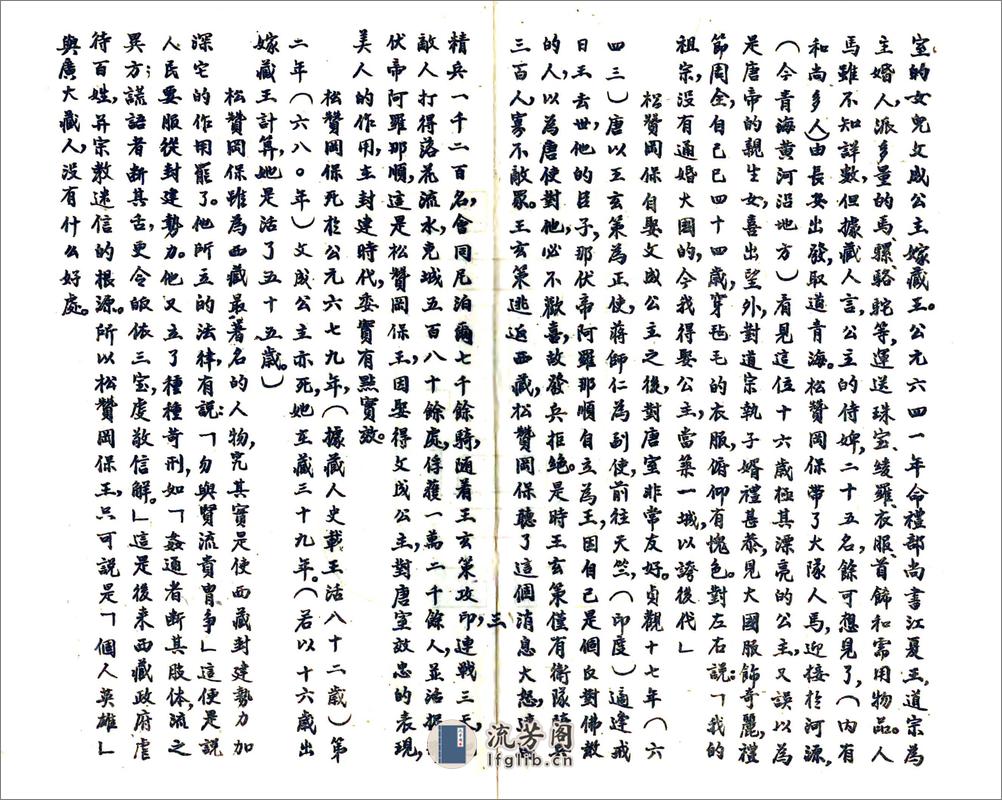 室的女兒文成公主嫁藏王。公元六四一年命禮部尚書江夏王道宗為
主婚人，派多量的馬騾駱駝等，運送珠寶、綾羅、衣服、首飾和需用物品。人
馬雖不知詳數，但據藏人言，公主的侍婢，二十五名，餘可想見了，（內有
和尚多人）由長安出發，取道青海。松贊岡保帶了大隊人馬，迎接於河源，
（今青海黃河沿地方）看見這位十六歲極其漂亮的公主，又誤以為
是唐帝的親生女，喜出望外，對道宗執子婿禮甚恭，見大國服飾奇麗，禮
節周全，自己已四十四歲，穿毡毛的衣服，俯仰有愧色。對左右說：「我的
祖宗，沒有通婚大國的，今我得娶公主，當築一城，以誇後代」
松贊岡保自娶文成公主之後，對唐室非常友好。貞觀十七年（六
四三）唐以王玄策為正使，蔣師仁為副使，前往天竺，（印度）適逢戒
日王去世，他的臣子，那伏帝阿羅那順自立為王，因自己是個反對佛教
的人，以為唐使對他，必不歡喜，故發兵拒絕。是時王玄策僅有衛隊騎兵
三百人，寡不敵眾。王玄策逃返西藏，松贊岡保聽了這個消息大怒，
精兵一千二百名，會同尼泊爾七千餘騎，隨着王玄策攻印，連戰三天，
敵人打得落花流水，克城五百八十餘處，俘獲一萬二千餘人，並活捉
伏帝阿羅那順，這是松贊岡保王，因娶得文成公主，對唐室效忠的表現，
美人的作用，在封建時代，委實有點實效。
松贊岡保死於公元六七九年，（據藏人史載王活八十二歲）第
二年（六八〇年）文成公主亦死，她在藏三十九年。（若以十六歲出
嫁藏王計算，她是活了五十五歲。）
松贊岡保雖為西藏最著名的人物，究其實是使西藏封建勢力加
深它的作用罷了。他所立的法律，有說：「勿與賢流貴冑爭」這便是說
人民要服從封建勢力。他又立了種種苛刑，如「姦通者斷其肢體，流之
異方；謊語者斷其舌，更令皈依三寶，虔敬信解。」這是後來西藏政府虐
待百姓，幷宗教迷信的根源。所以松贊岡保王，只可說是「個人英雄」
與廣大藏人，沒有什么好處。
流芳阁
lfglib.cn